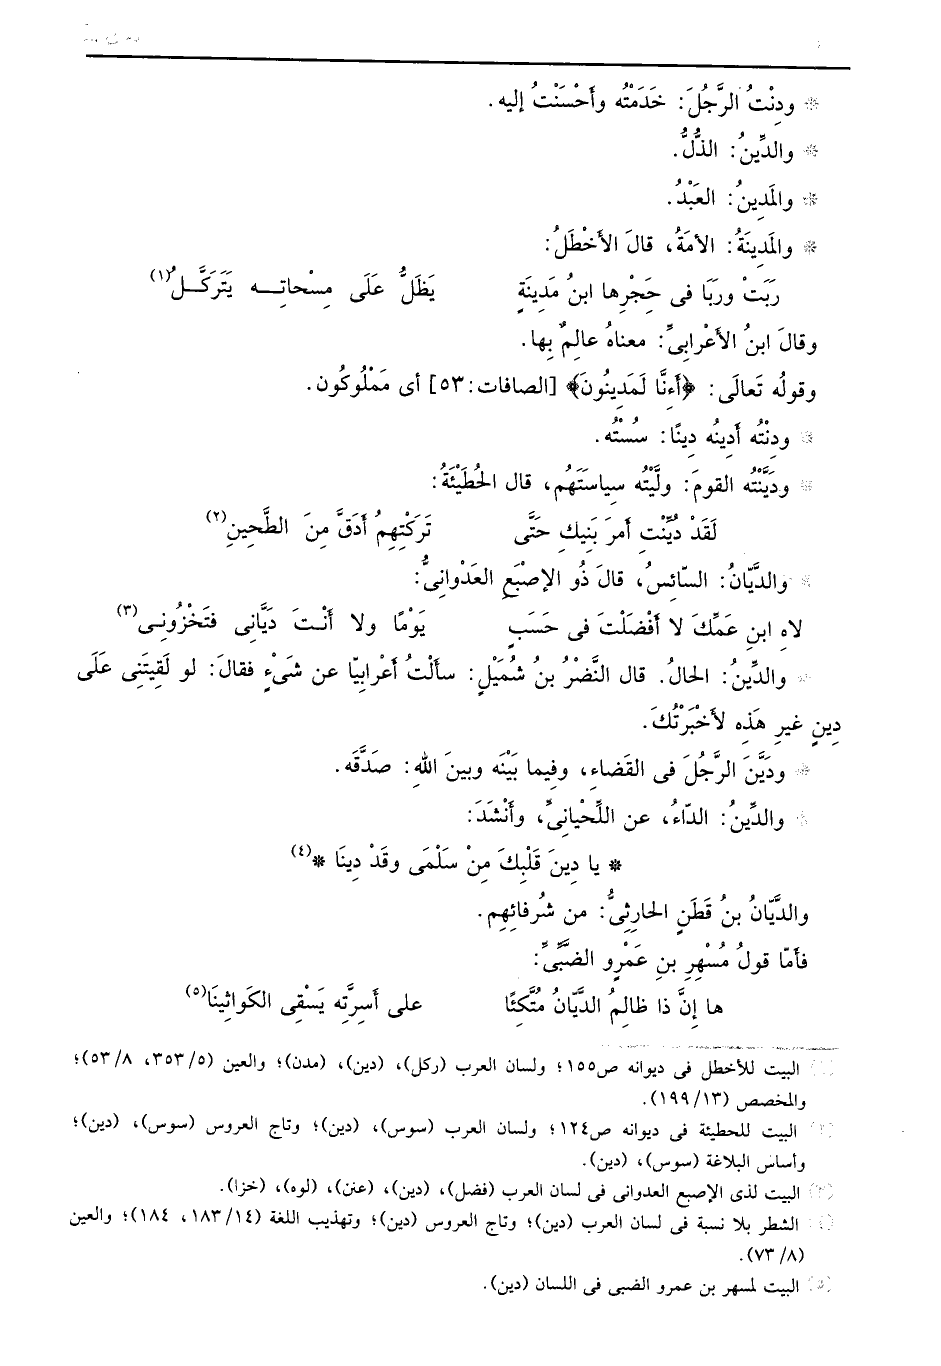 * ودِنْتُ الرَّجُلَ: خَدَمْتُه وأَحْسَنْتُ إليه.
* والدِّينُ: الذُّلُّ.
* والمَدِينُ: العَبْدُ.
* والمَدِينَةُ: الأمَةُ، قالَ الأَخْطَلُ:
رَبَتْ وربَا فى حَجْرِها ابنُ مَدِينَةٍ يَظَلُّ عَلَى مِسْحاتِـــه يَتَرَكَّـــلُ(١)
وقالَ ابنُ الأَعْرابِىِّ: معناهُ عالِمٌ بِها.
وقولُه تَعالَى: ﴿أَءنَّا لَمَدِينُونَ﴾ [الصافات: ٥٣] أى مَمْلُوكُون.
* ودِنْتُه أدِينُه دِينًا: سُسْتُه.
* ودَيَّنْتُه القومَ: ولَّيْتُه سِياسَتَهُم، قال الحُطَيْئَةُ:
لَقَدْ دُيِّنْتِ أمرَ بَنِيكِ حَتَّى تَرَكْتِهِمُ أَدَقَّ مِنَ الطَّحِينِ(٢)
* والدَّيّانُ: السّائِسُ، قالَ ذُو الإصْبَعِ العَدْوانِىُّ:
لاهِ ابنِ عَمِّكَ لا أَفْضَلْتَ فى حَسَبٍ يَوْمًا ولا أَنْـتَ دَيَّانِى فتَخْزُونِـى(٣)
* والدِّينُ: الحالُ. قال النَّضْرُ بنُ شُمَيْلٍ: سأَلْتُ أَعْرابِيّا عن شَىْءٍ فقالَ: لو لَقِيتَنِى عَلَى
دِينٍ غيرِ هَذِه لأَخْبَرْتُكَ.
* ودَيَّنَ الرَّجُلَ فى القَضاءِ، وفِيما بَيْنَه وبينَ اللهِ: صَدَّقَه.
* والدِّينُ: الدّاءُ، عن اللِّحْيانِىِّ، وأَنْشَدَ:
* يا دِينَ قَلْبِكَ مِنْ سَلْمَى وقَدْ دِينَا *(٤)
والدَّيّانُ بنُ قَطَنٍ الحارِثِىُّ: من شُرفائِهِم.
فأمّا قولُ مُسْهِرِ بنِ عَمْرٍو الضَّبِّىِّ:
ها إِنَّ ذا ظالِمُ الدَّيّانُ مُتَّكِئًا على أَسِرَّتِه يَسْقِى الكَوانِينَا(٥)
(١) البيت للأخطل فى ديوانه ص١٥٥؛ ولسان العرب (ركل)، (دين)، (مدن)؛ والعين (٣٥٣/٥، ٥٣/٨)؛
والمخصص (١٩٩/١٣).
(٢) البيت للحطيئة فى ديوانه ص١٢٤؛ ولسان العرب (سوس)، (دين)؛ وتاج العروس (سوس)، (دين)؛
وأساس البلاغة (سوس)، (دين).
(٣) البيت لذى الإصبع العدوانى فى لسان العرب (فضل)، (دين)، (عنن)، (لوه)، (خزا).
(٤) الشطر بلا نسبة فى لسان العرب (دين)؛ وتاج العروس (دين)؛ وتهذيب اللغة (١٨٣/١٤، ١٨٤)؛ والعين
(٧٣/٨).
(٥) البيت لمسهر بن عمرو الضبى فى اللسان (دين).